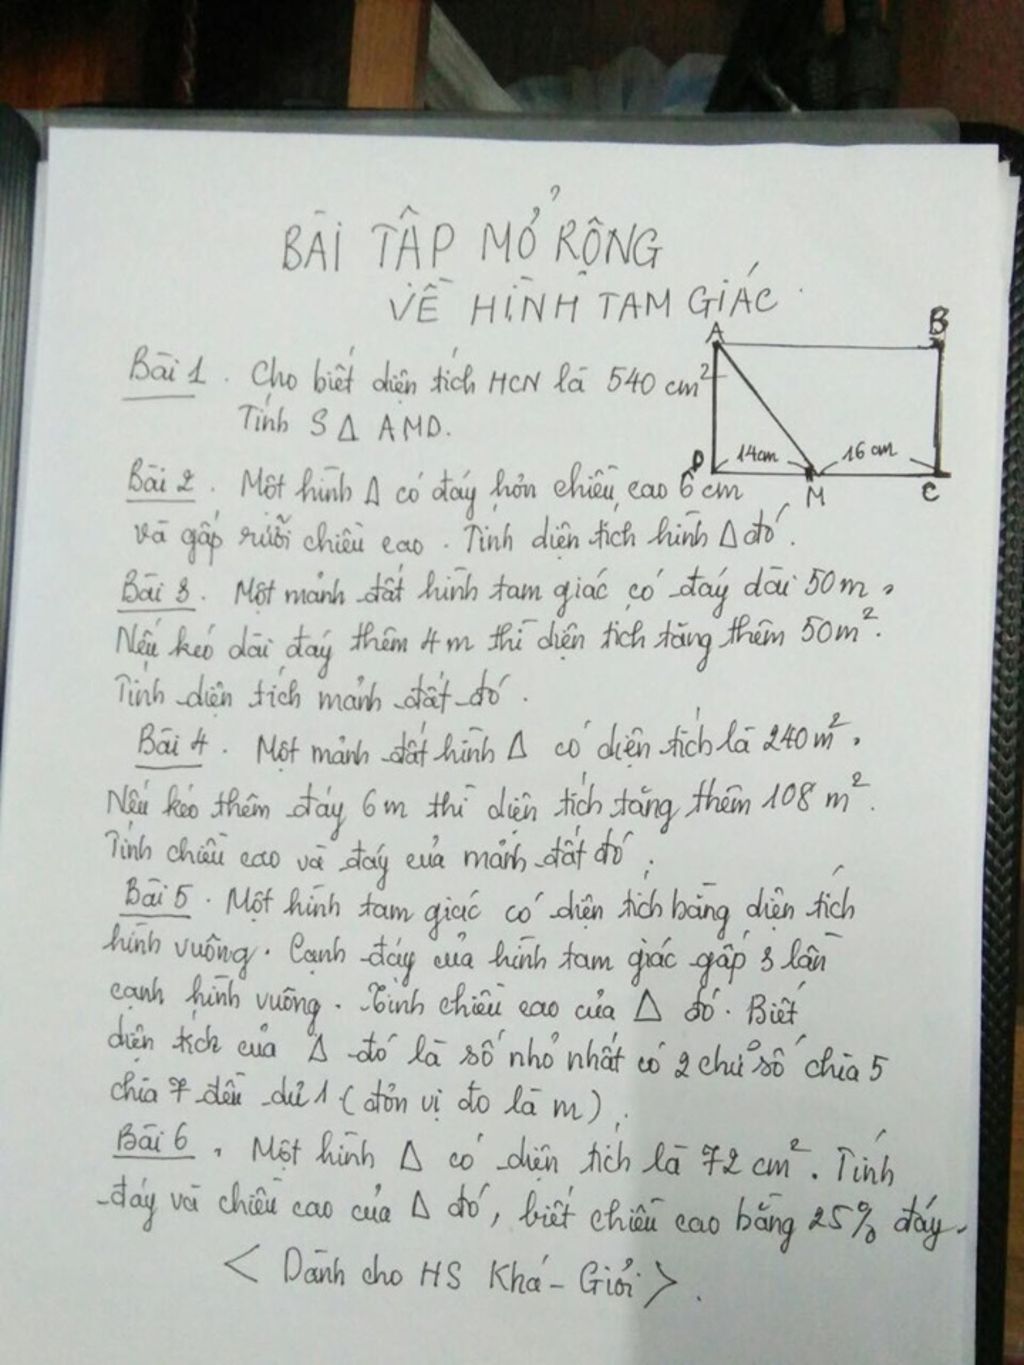 BÀI TẬP MỞ RỘNG
VỀ HÌNH TAM GIÁC.
A B
Bài 1. Cho biết diện tích HCN là 540 cm²
Tính S Δ AMD.
D 14cm M 16 cm C
Bài 2. Một hình Δ có đáy hơn chiều cao 6 cm
và gấp rưỡi chiều cao. Tính diện tích hình Δ đó.
Bài 3. Một mảnh đất hình tam giác có đáy dài 50 m.
Nếu kéo dài đáy thêm 4 m thì diện tích tăng thêm 50 m².
Tính diện tích mảnh đất đó.
Bài 4. Một mảnh đất hình Δ có diện tích là 240 m².
Nếu kéo thêm đáy 6 m thì diện tích tăng thêm 108 m².
Tính chiều cao và đáy của mảnh đất đó.
Bài 5. Một hình tam giác có diện tích bằng diện tích
hình vuông. Cạnh đáy của hình tam giác gấp 3 lần
cạnh hình vuông. Tính chiều cao của Δ đó. Biết
diện tích của Δ đó là số nhỏ nhất có 2 chữ số chia 5
chia 7 đều dư 1 (đơn vị đo là m).
Bài 6. Một hình Δ có diện tích là 72 cm². Tính
đáy và chiều cao của Δ đó, biết chiều cao bằng 25% đáy.
< Dành cho HS Khá - Giỏi >.